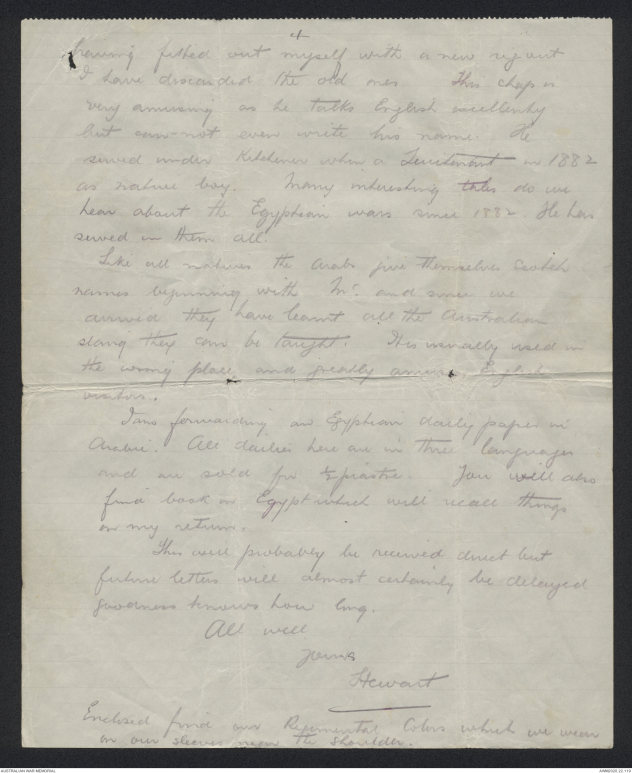 4
having fitted out myself with a new rigout
I have discarded the old ones This chap is
very amusing as he talks English excellently
but can-not even write his name. He
served under Kitchener when a Lieutenant in 1882
as native boy. Many interesting tales do we
hear about the Egyptian wars since 1882. He has
served in them all.
Like all natives the Arabs give themselves Scotch
names beginning with Mc. and since we
arrived they have learnt all the Australian
slang they can be taught. It is usually used in
the wrong place and greatly amuses English
visitors.
I am forwarding an Egyptian daily paper in
Arabic. All dailies here are in three languages
and are sold for ½ piastre. You will also
find book on Egypt which will recall things
on my return.
This will probably be received direct but
future letters will almost certainly be delayed
goodness knows how long.
All well
Yours
Stewart
Enclosed find our Regimental Colors which we wear
on our sleeves near the shoulder.
AUSTRALIAN WAR MEMORIAL